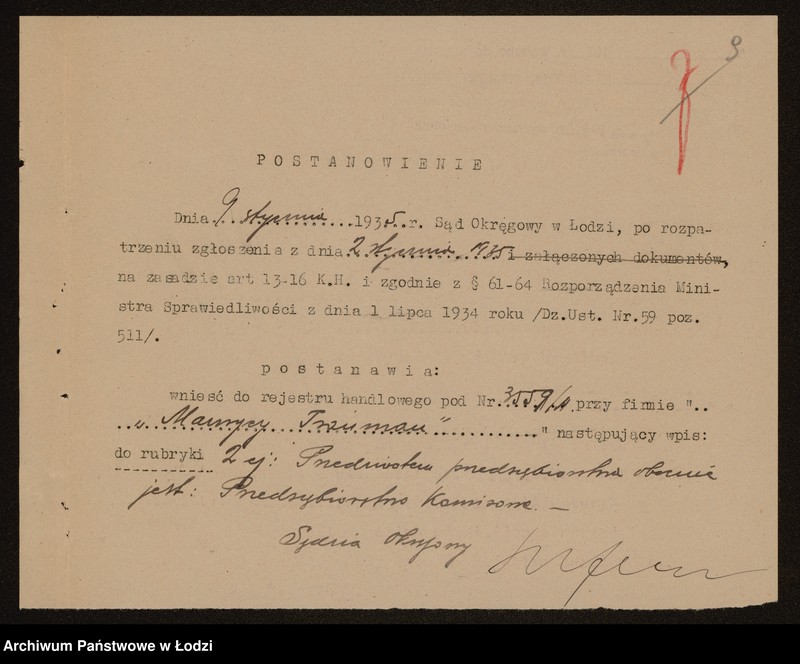 9
P O S T A N O W I E N I E
Dnia 9. stycznia ....1935.r. Sąd Okręgowy w Łodzi, po rozpa-
trzeniu zgłoszenia z dnia 2 stycznia 1935 i załączonych dokumentów,
na zasadzie art 13-16 K.H. i zgodnie z § 61-64 Rozporządzenia Mini-
stra Sprawiedliwości z dnia 1 lipca 1934 roku /Dz.Ust. Nr.59 poz.
511/.
p o s t a n a w i a:
wnieść do rejestru handlowego pod Nr. przy firmie "..
..„Maurycy Trauman"..........." następujący wpis:
do rubryki 2 ej: Przedmiotem przedsiębiorstwa obecnie
jest: Przedsiębiorstwo Komisowe. —
Sędzia Okręgowy
Archiwum Państwowe w Łodzi